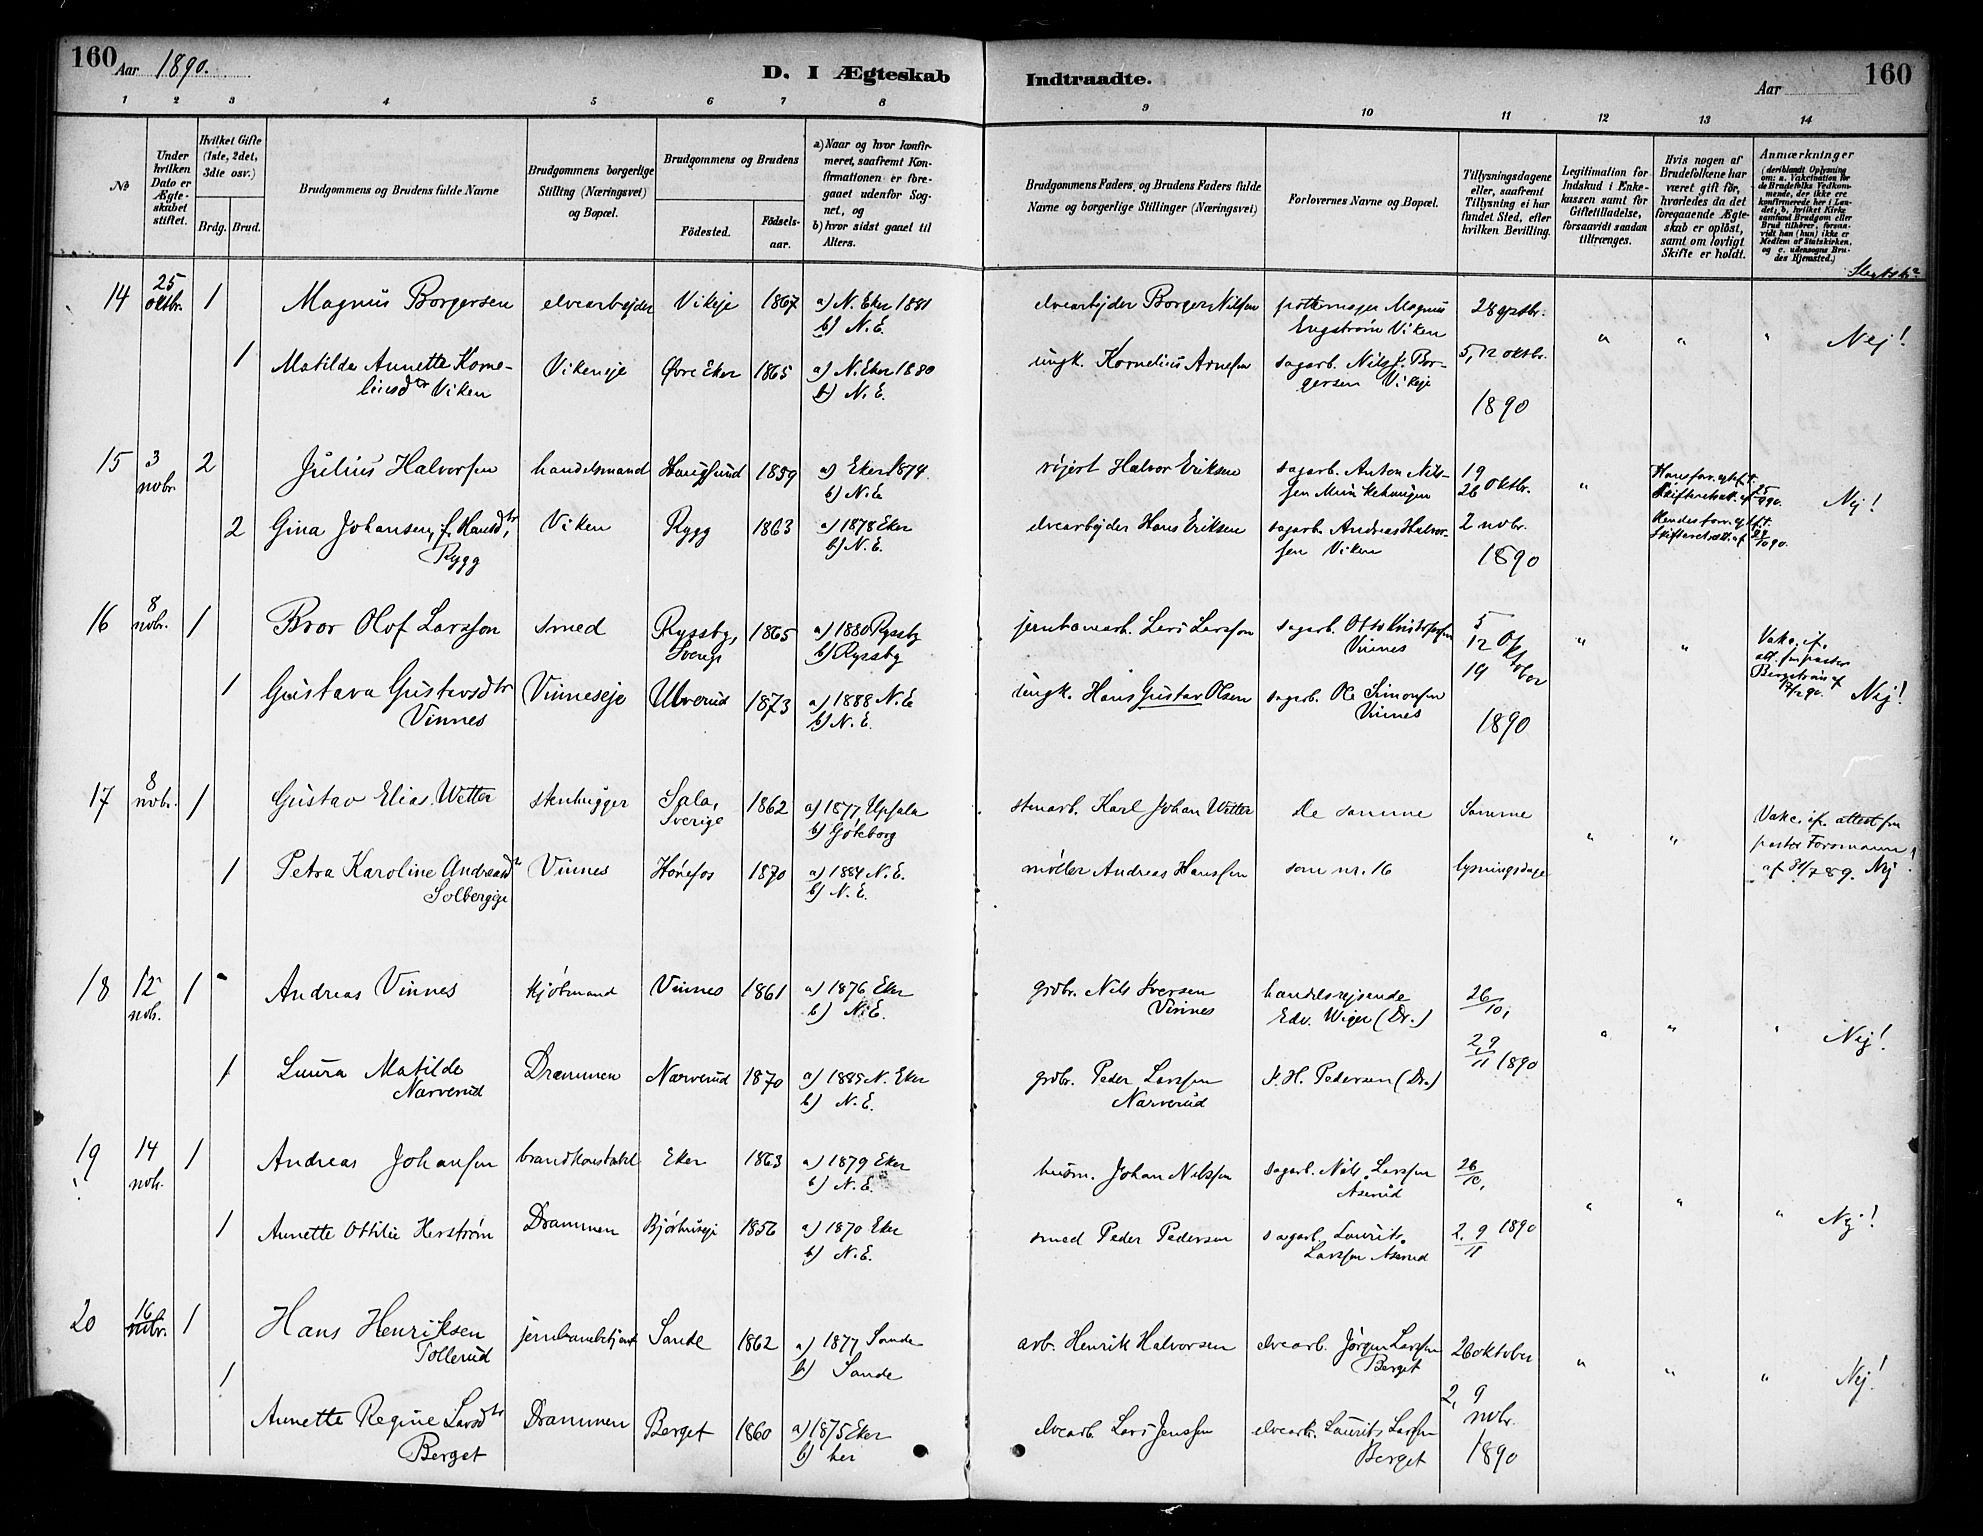 160 Aar 1890.
D. I Ægteskab Indtraadte.
Aar 160
1 2 3 4 5 6 7 8 9 10 11 12 13 14
No
Under hvilken Dato er Ægteskabet stiftet.
Hvilket Gifte (1ste, 2det, 3dte osv.)
Brdg. Brud.
Brudgommens og Brudens fulde Navne
Brudgommens borgerlige Stilling (Næringsvei) og Bopæl.
Brudgommens og Brudens
Fødested. Fødselsaar.
a) Naar og hvor konfirmeret, saafremt Konfirmationen er foregaaet udenfor Sognet, og
b) hvor sidst gaaet til Alters.
Brudgommens Faders, og Brudens Faders fulde Navne og borgerlige Stillinger (Næringsvei)
Forlovernes Navne og Bopæl.
Tillysningsdagene eller, saafremt Tillysning ei har fundet Sted, efter hvilken Bevilling.
Legitimation for Indskud i Enkekassen samt for Giftetilladelse, forsaavidt saadan tiltrænges.
Hvis nogen af Brudefolkene har været gift før, hvorledes da det foregaaende Ægteskab er opløst, samt om lovligt Skifte er holdt.
Anmærkninger
(deriblandt Oplysning om: a. Vakcination for de Brudefolks Vedkommende, der ikke ere konfirmerede her i Landet; b, hvilket Kirkesamfund Brudgom eller Brud tilhører, forsaavidt han (hun) ikke er Medlem af Statskirken, og c. udensogns Brudes Hjemsted.)
14 25 oktbr. 1 Magnus Borgersen elvearbejder Vikeje 1867 a) N. Eker 1881 b) N.E. elvearbejder Borger Nilsen Magnus Engstrøm Viken 28 sptbr. " " " Nej!
1 Matilde Annette Kornelinsdtr Viken Vikeneje Øvre Eker 1865 a) N. Eker 1880 b) N.E. ungk. Kornelius Arnesen sagarb. Nils J. Borgersen Vikeje 5, 12 oktbr. 1890
15 3 nobr. 2 Julius Halvorsen handelsmand Hougsund 1859 a) Eker 1874. b) N.E. Halvor Eriksen sagarb. Anton Nilssen 19 26 oktbr. " Nej!
2 Gina Johansen, f. Hansdtr, Rygg Viken Rygg 1863 a) 1878 Eker b) N.E. elvearbejder Hans Eriksen sagarb. Andreas Halvorsen Viken 2 nobr. 1890
16 8 nobr. 1 Bror Olof Larsson smed Ryssby, Sverige 1865 a) 1880 Ryssby b) Ryssby jernbanearb. Lars Larsson sagarb. Otto Kristofersen Vinnes 5 12 19 Oktober 1890 " " Vakc. if. att. fra pastor Bergstrøm af
1 Gustava Gustavsdtr Vinnes Vinneseje Ulverud 1873 a) 1888 N.E. b) N.E. ungk. Hans Gustav Olsen sagarb. Ole Simonsen Vinnes Nej!
17 8 nobr. 1 Gustav Elias Wetter stenhugger Sala, Sverige 1862 a) 1877 Upsala b) Göteborg stenarb. Karl Johan Wetter De samme Samme " " Vakc. if. attest fra pastor Forsmann
1 Petra Karoline Andreasdtr Solbergeje Vinnes Hønefos 1870 a) 1884 N.E. b) N.E. møller Andreas Hanssen som nr. 16 lysningsdage af 31/7 89. Nej!
18 12 nob. 1 Andreas Vinnes kjøbmand Vinnes 1861 a) 1876 Eker b) N.E. grdbr. Nils Iversen Vinnes handelsrejsende Edv. Wiger (Dr.) 26/10, " " " Nej!
1 Laura Matilde Narverud Drammen Narverud 1870 a) 1885 N. Eker b) N.E. grdbr. Peder Larssen Narverud P. H. Pedersen (Dr.) 2, 9/11 1890
19 14 nob. 1 Andreas Johansen brandkonstabel Eker 1863 a) 1879 Eker b) N.E. husm. Johan Nilssen sagarb. Nils Larssen Aserud 26/10, " " " Nej!
1 Annette Ottilie Herstrøm Drammen 1856 a) 1870 Eker b) N.E. smed Peder Pedersen sagarb. Laurits Larssen Aserud 2, 9/11 1890
20 16 nobr. 1 Hans Henriksen Tollerud jernbanebetjent Sande 1862 a) 1877 Sande b) Sande arb. Henrik Halvorsen elvearb. Jørgen Larssen Berget 26 oktober " " " Nej!
1 Annette Regine Larsdtr Berget Drammen Berget 1860 a) 1875 Eker b) her elvearb Lars Jenssen elvearb. Laurits Larssen Berget 2, 9 nobr. 1890